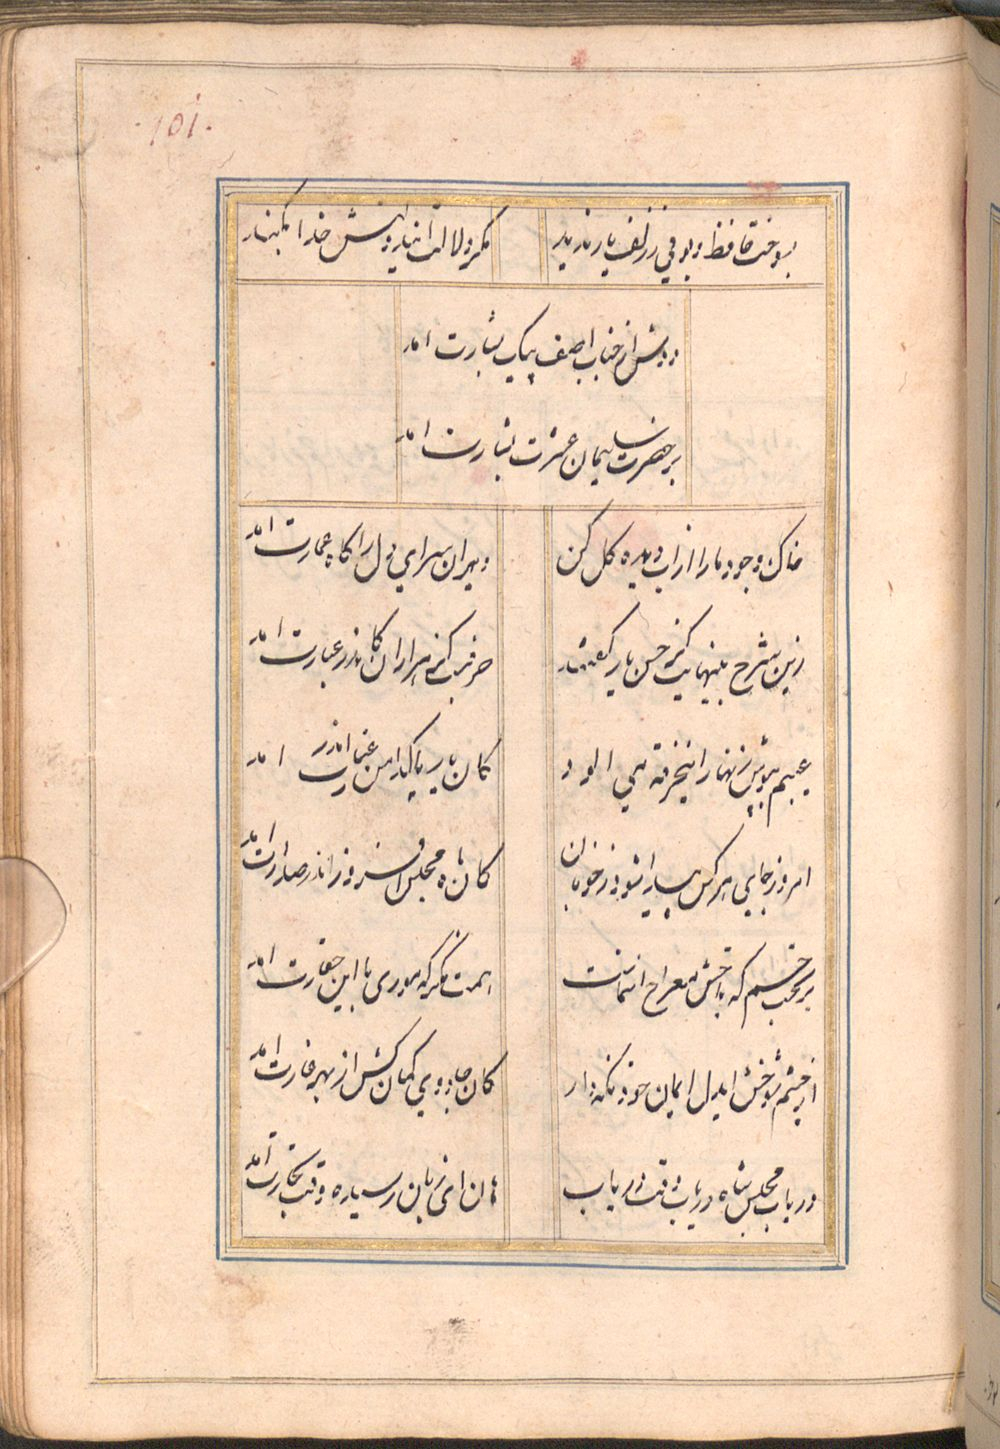 ۱۵۱
بسوخت حافظ و بویی ز زلف یار نبرد
مگر دلالت این دولتش خدا بکند
دوش از جناب اصف پیک بشارت امد
بر حضرت سلیمان عشرت بشارت امد
خاک وجود ما را از اب دیده کل کن
ویران سرای دل را کاه عمارت امد
زین شرح بینهایت کز حسن یار کفتند
حرفیست کز هزاران کاندر عبارت امد
عیبم بپوش زنهار ای خرقه می الود
کان یار پاکدامن اندر امد
امروز جای هر کس پیدا شود ز خوبان
کان ماه مجلس افروز اندر صدارت امد
بر تخت جم که تاجش معراج اسمانست
همت نکر که موری با این حقارت امد
از چشم شوخش ایدل ایمان خود نکه دار
کان جادوی کمان کش از بهر غارت امد
دریاب مجلس شاه دریاب وقت دریاب
هان ای زیان رسیده وقت تجارت امد